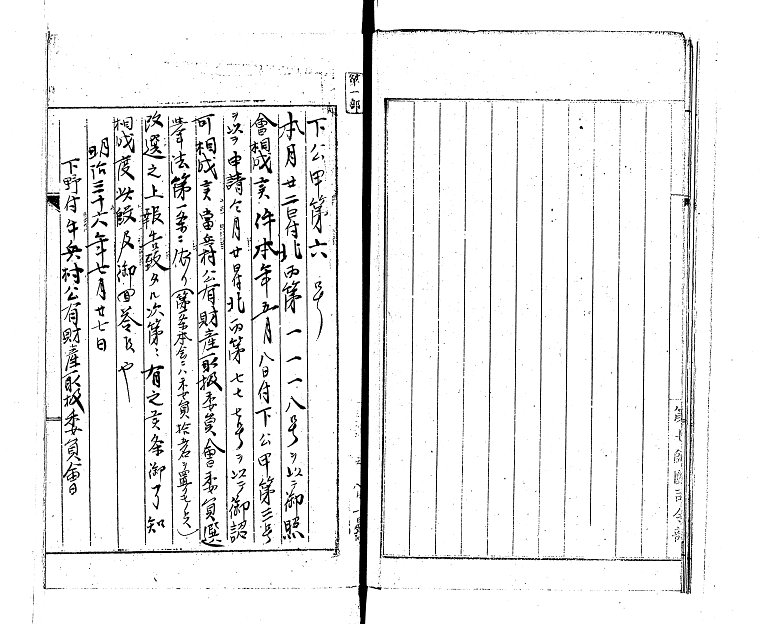 第一部
下公甲第六号
本月廿二日付北丙第一一一八号ヲ以テ御照
會相成候件本年五月八日付下公甲第三号
ヲ以テ申請仝月廿日付北丙第七七七号ヲ以テ御認
可相成候當兵村公有財産取扱委員會委員選
挙法第一条ニ依リ
改選之上報告致タル次第ニ有之候条御了知
相成度此段及御回答候也
明治三十六年七月廿七日
下野付牛兵村公有財産取扱委員會